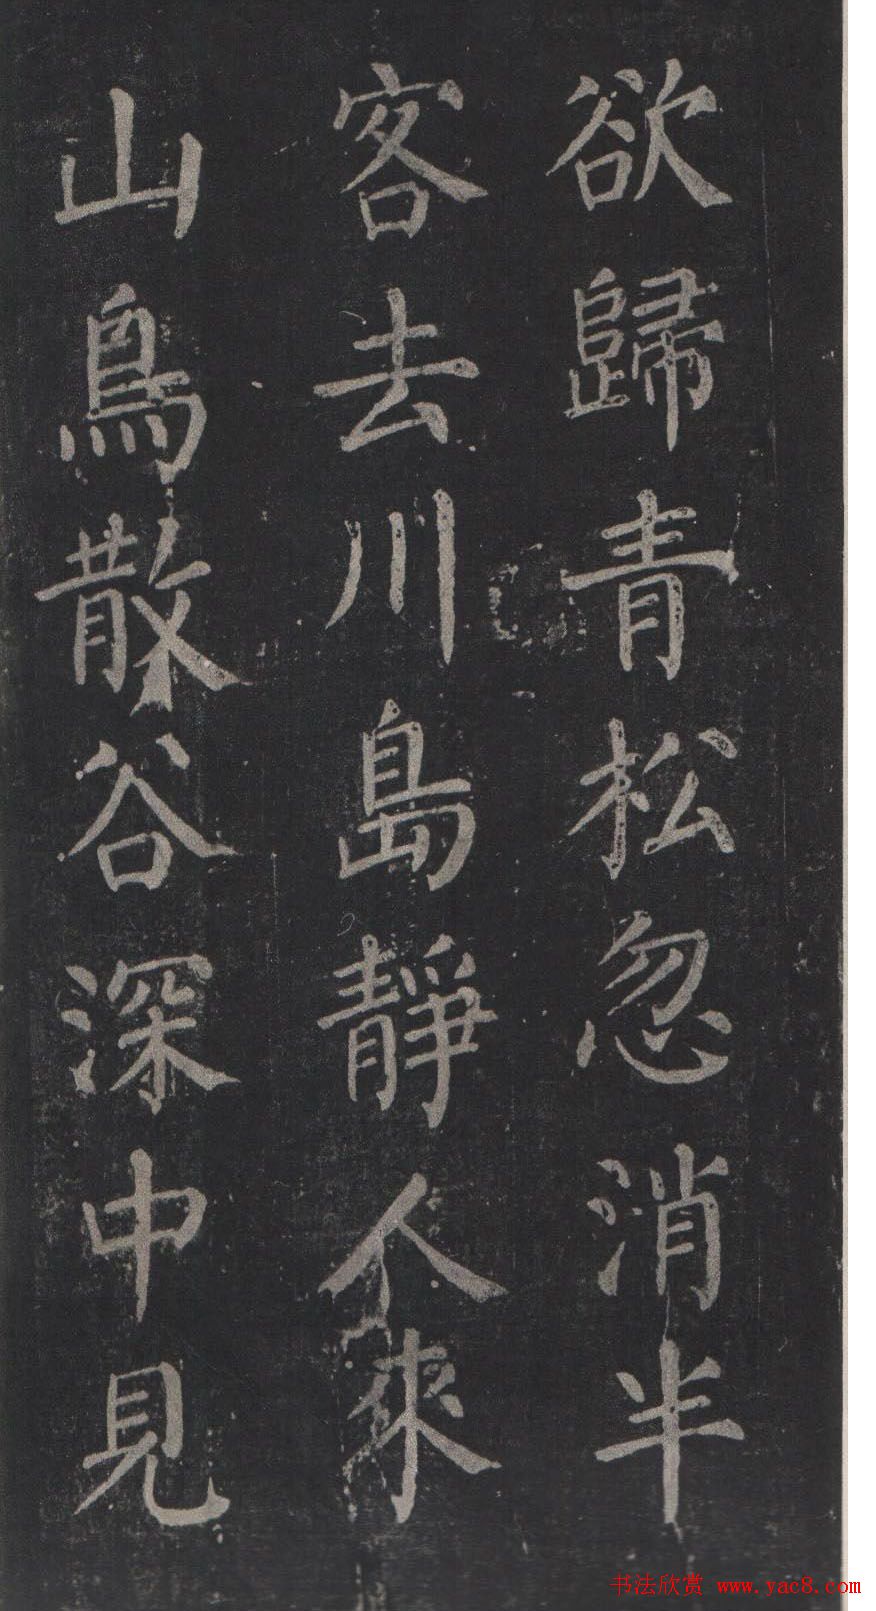 欲歸青松忽消半
客去川島靜人來
山鳥散谷深中見
书法欣赏 www.yac8.com